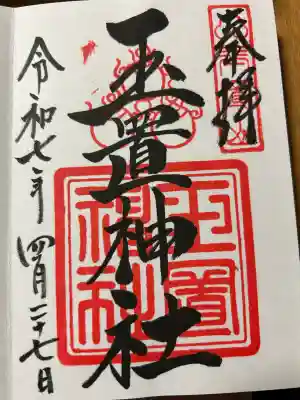 奉拝
玉置神社
玉置神社
令和七年 四月二十七日